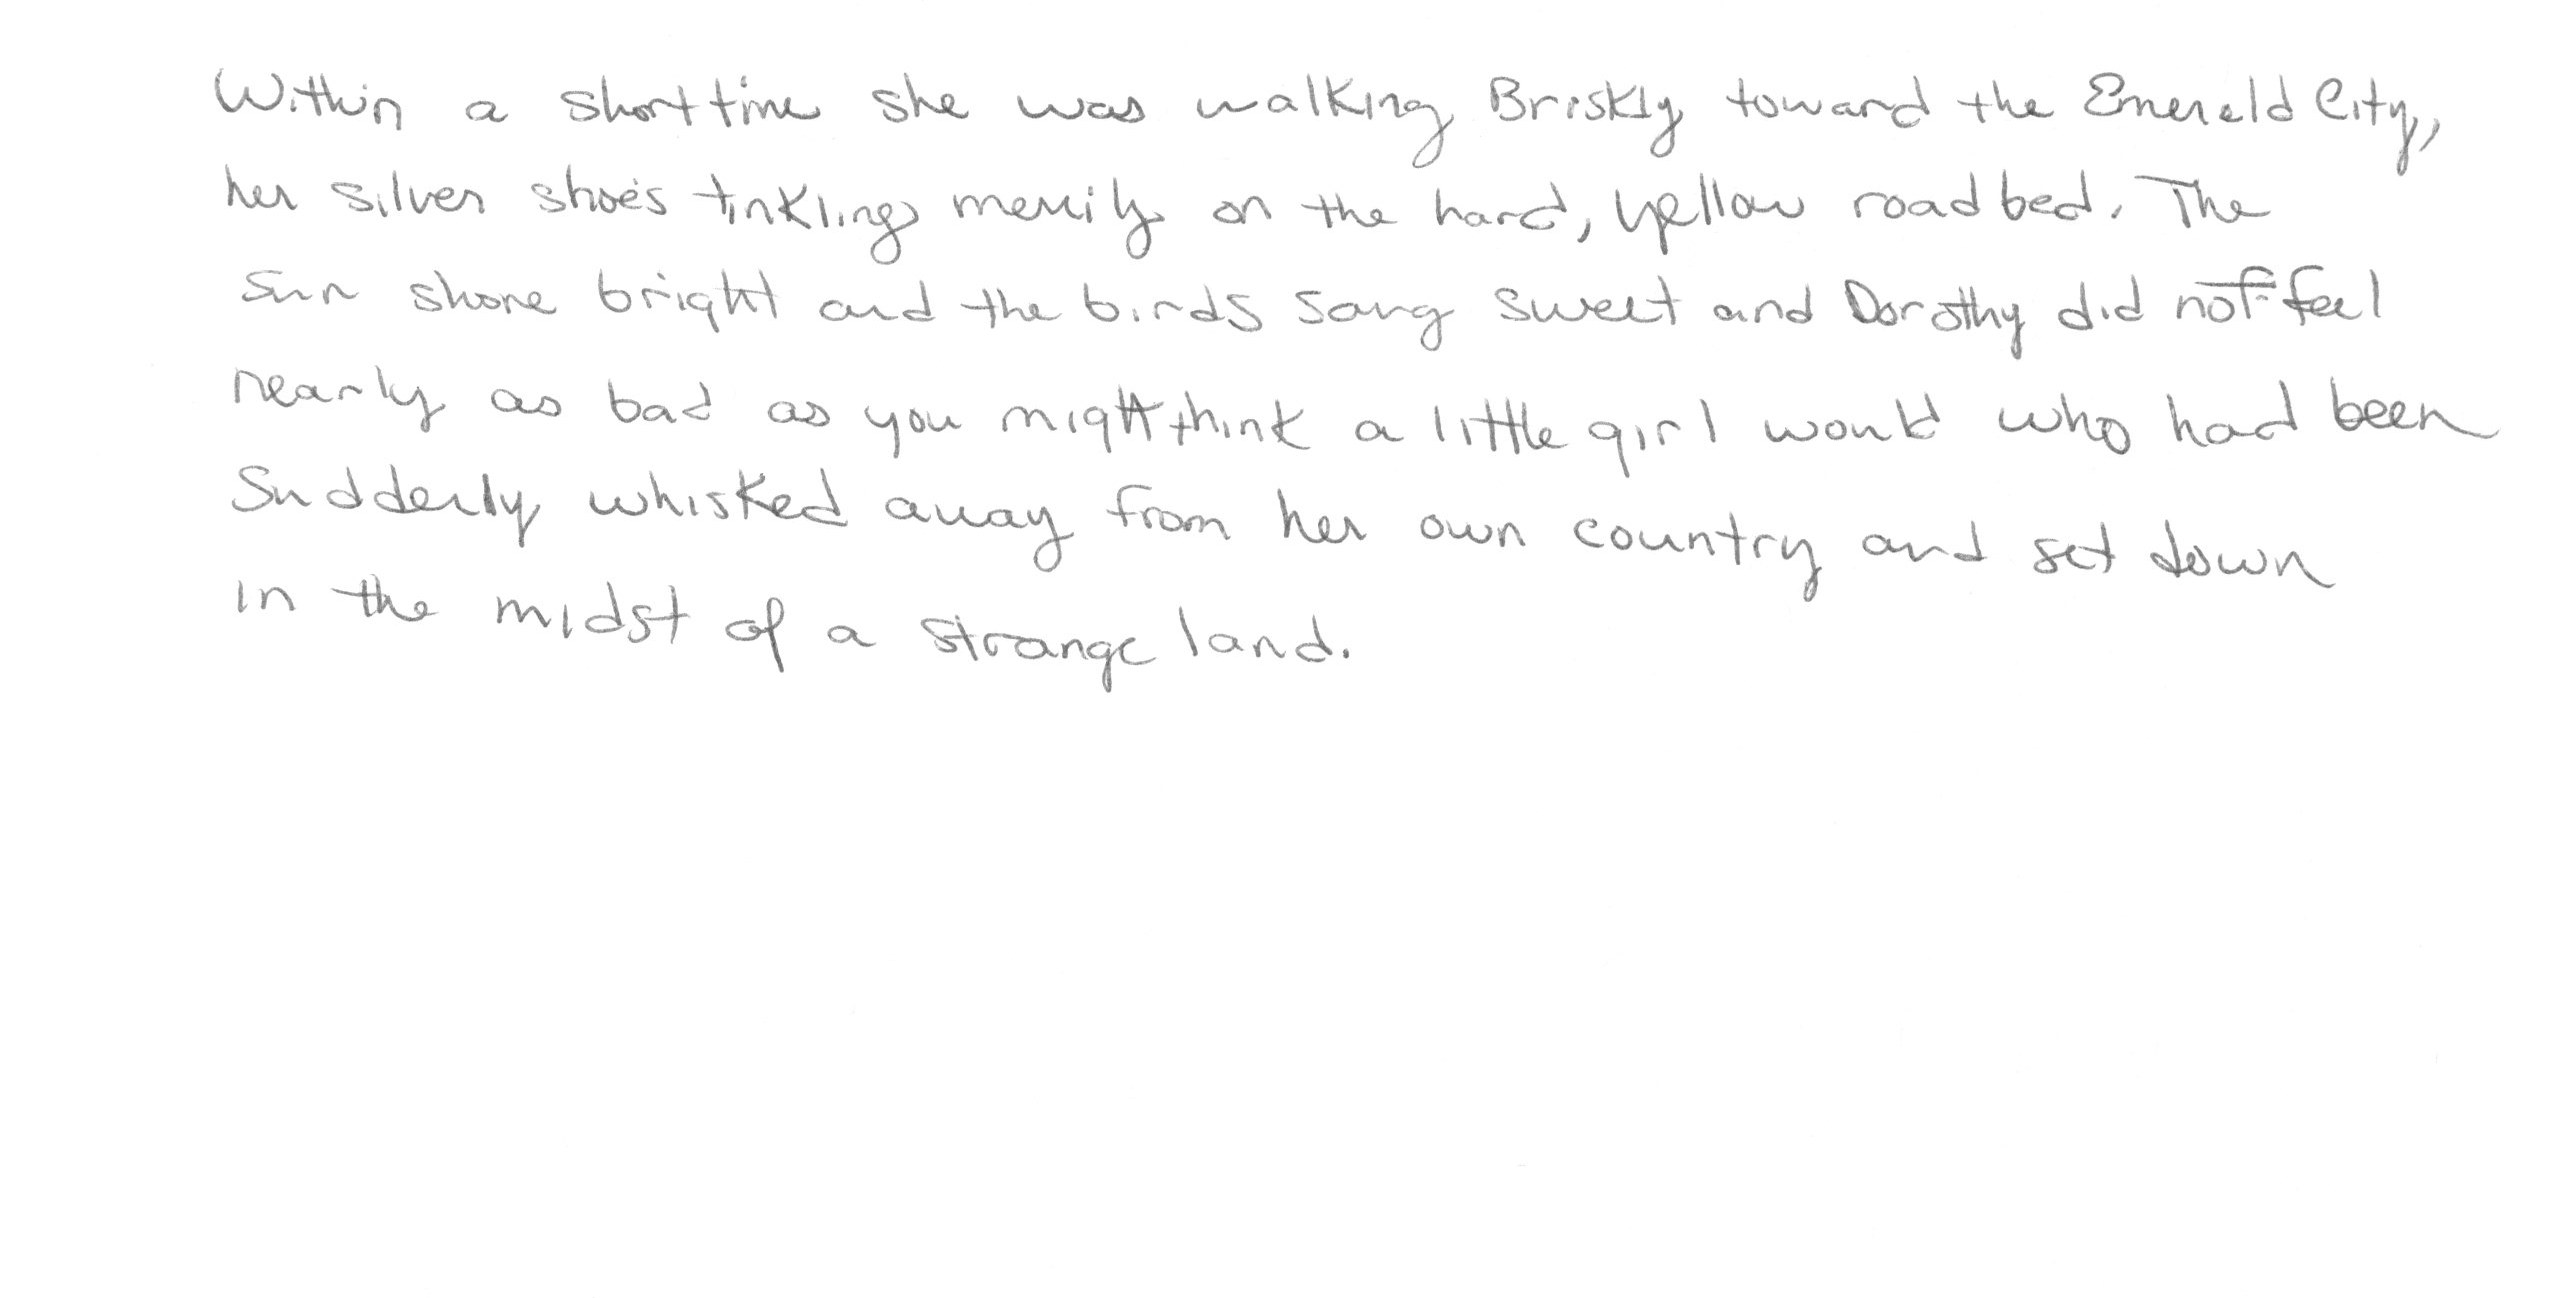 Within a short time she was walking Briskly toward the Emerald City,
her silver shoes tinkling merrily on the hard, yellow roadbed. The
sun shone bright and the birds sang sweet and Dorothy did not feel
nearly as bad as you might think a little girl would who had been
suddenly whisked away from her own country and set down
in the midst of a strange land.